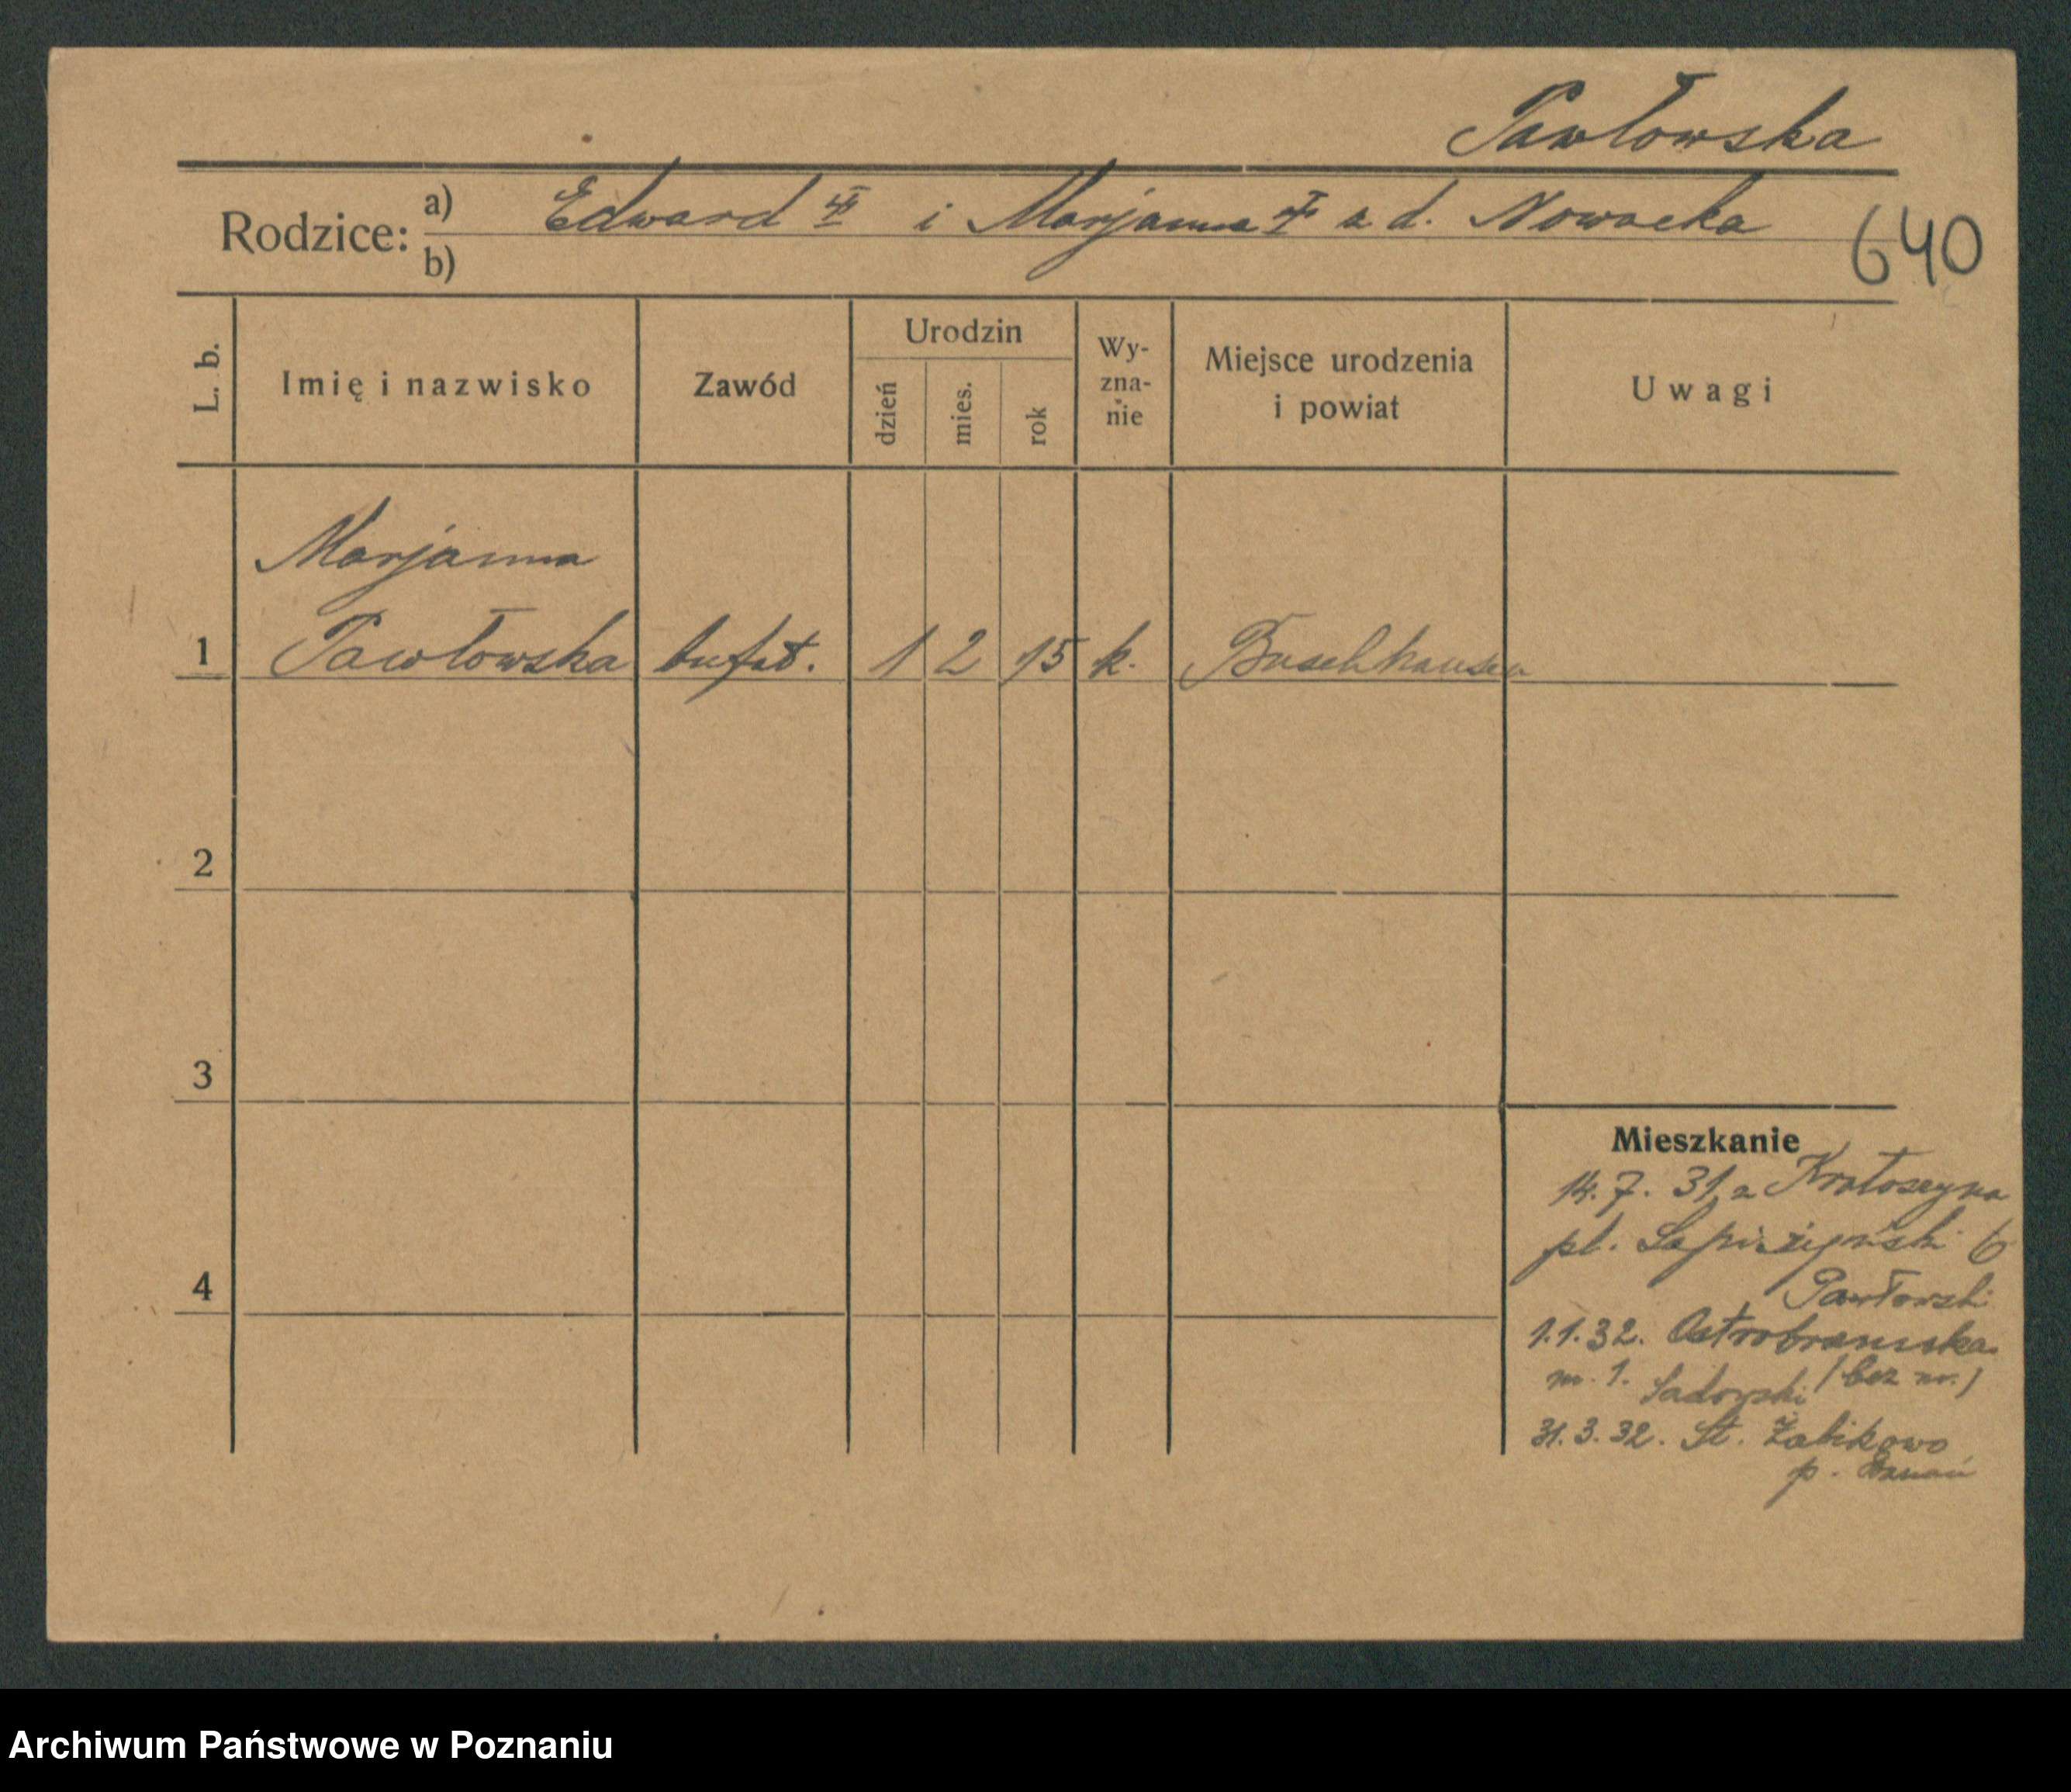 Pawłowska
Rodzice: a) Edward i Marjanna z d. Nowacka
b)
640
L. b.
Imię i nazwisko
Zawód
Urodzin
dzień
mies.
rok
Wy-
zna-
nie
Miejsce urodzenia
i powiat
Uwagi
Marjanna
1 Pawłowska bufet. 1 2 15 k. Buschhausen
2
3
4
Mieszkanie
14.7.31 z Krotoszyna
pl. Sapieżyński 6
Pawłowski
1.1.32. Ostrobramska
m. 1. Sadowski (bez nr.)
31.3.32. St. Żabikowo
p. Poznań
Archiwum Państwowe w Poznaniu